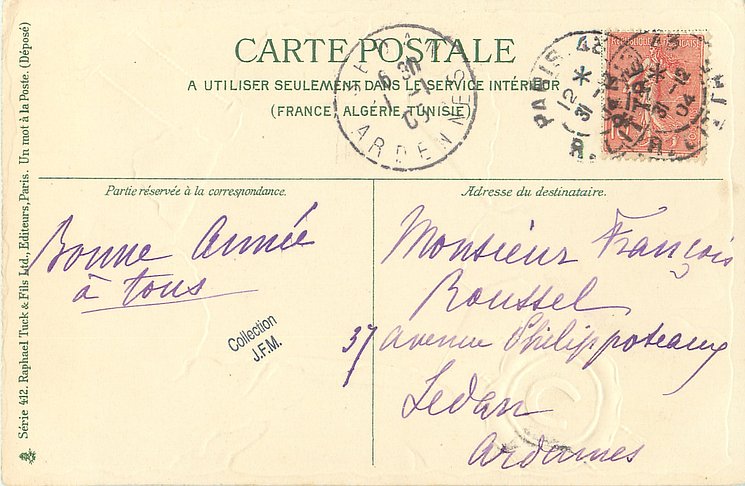 CARTE POSTALE
A UTILISER SEULEMENT DANS LE SERVICE INTÉRIEUR
(FRANCE, ALGÉRIE, TUNISIE)
SEDAN
ARDENNES
PARIS
31 -12
04
Partie réservée à la correspondance.
Adresse du destinataire.
Bonne Année
à tous
Monsieur François
Roussel
37 avenue Philippoteaux
Sedan
Ardennes
Collection
J.F.M.
Série 412. Raphael Tuck & Fils Ltd., Editeurs, Paris. Un mot à la Poste. (Déposé)